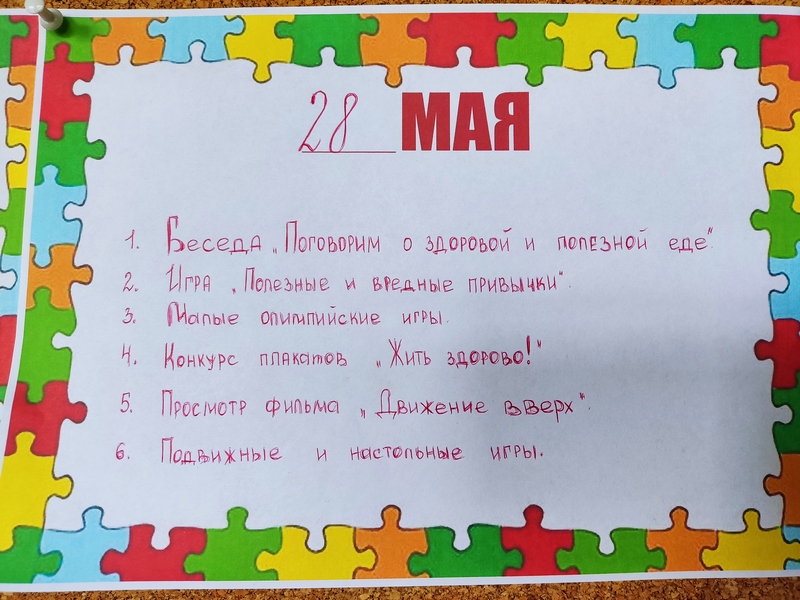 28 МАЯ
1. Беседа „Поговорим о здоровой и полезной еде".
2. Игра „Полезные и вредные привычки".
3. Малые олимпийские игры.
4. Конкурс плакатов „Жить здорово!"
5. Просмотр фильма „Движение вверх".
6. Подвижные и настольные игры.